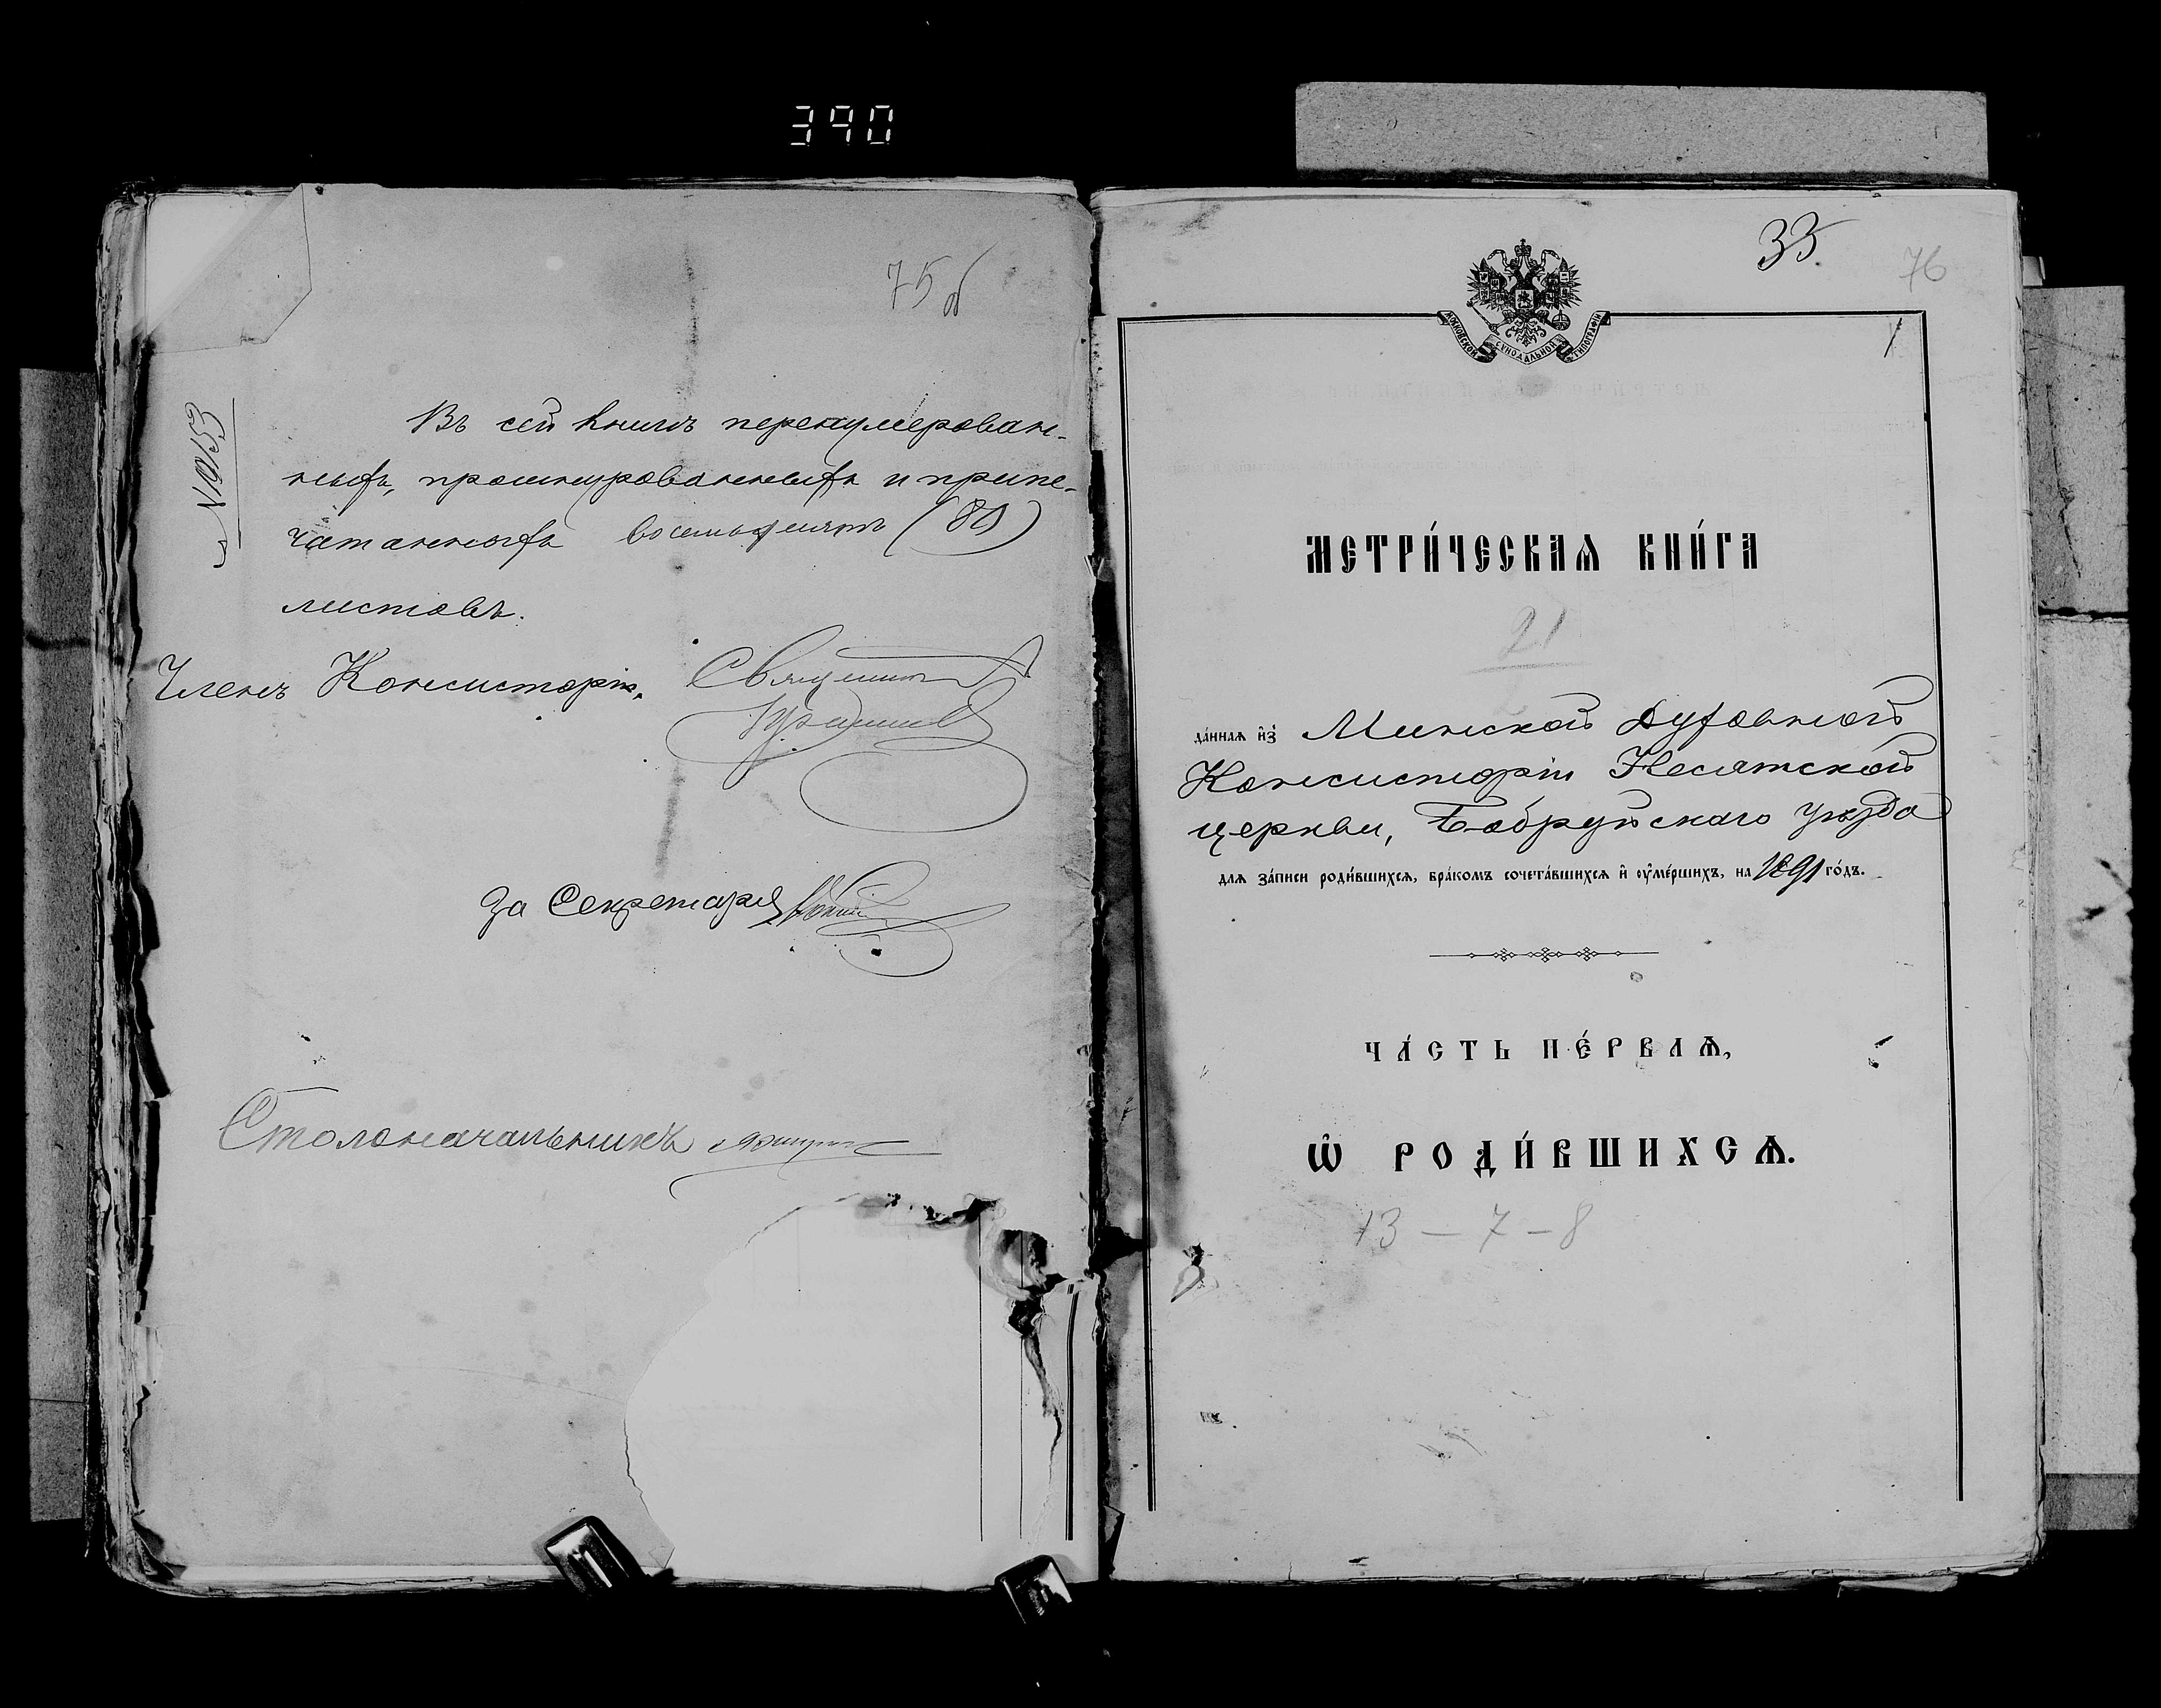 390
75 об
№ 10153
Въ сей книгѣ перенумерован-
ныхъ, прошнурованныхъ и припе-
чатанныхъ восемьдесятъ (80)
листовъ.
Членъ Консисторіи, Священникъ
За Секретаря
Столоначальникъ
33
76
1
МОСКОВСКОЙ СѴНОДАЛЬНОЙ ТИПОГРАФІИ
МЕТРИ́ЧЕСКАѦ КНИ́ГА
21
да́ннаѧ и҆з̾ Минской Духовной
Консисторіи Несятской
церкви, Бобруйскаго уѣзда
длѧ за́писи роди́вшихсѧ, бра́комъ сочета́вшихсѧ и҆ ᲂу҆ме́ршихъ, на 1891 го́дъ.
ЧА́СТЬ ПЕ́РВАѦ,
Ѡ҆ РОДИ́ВШИХСѦ.
13 – 7 – 8